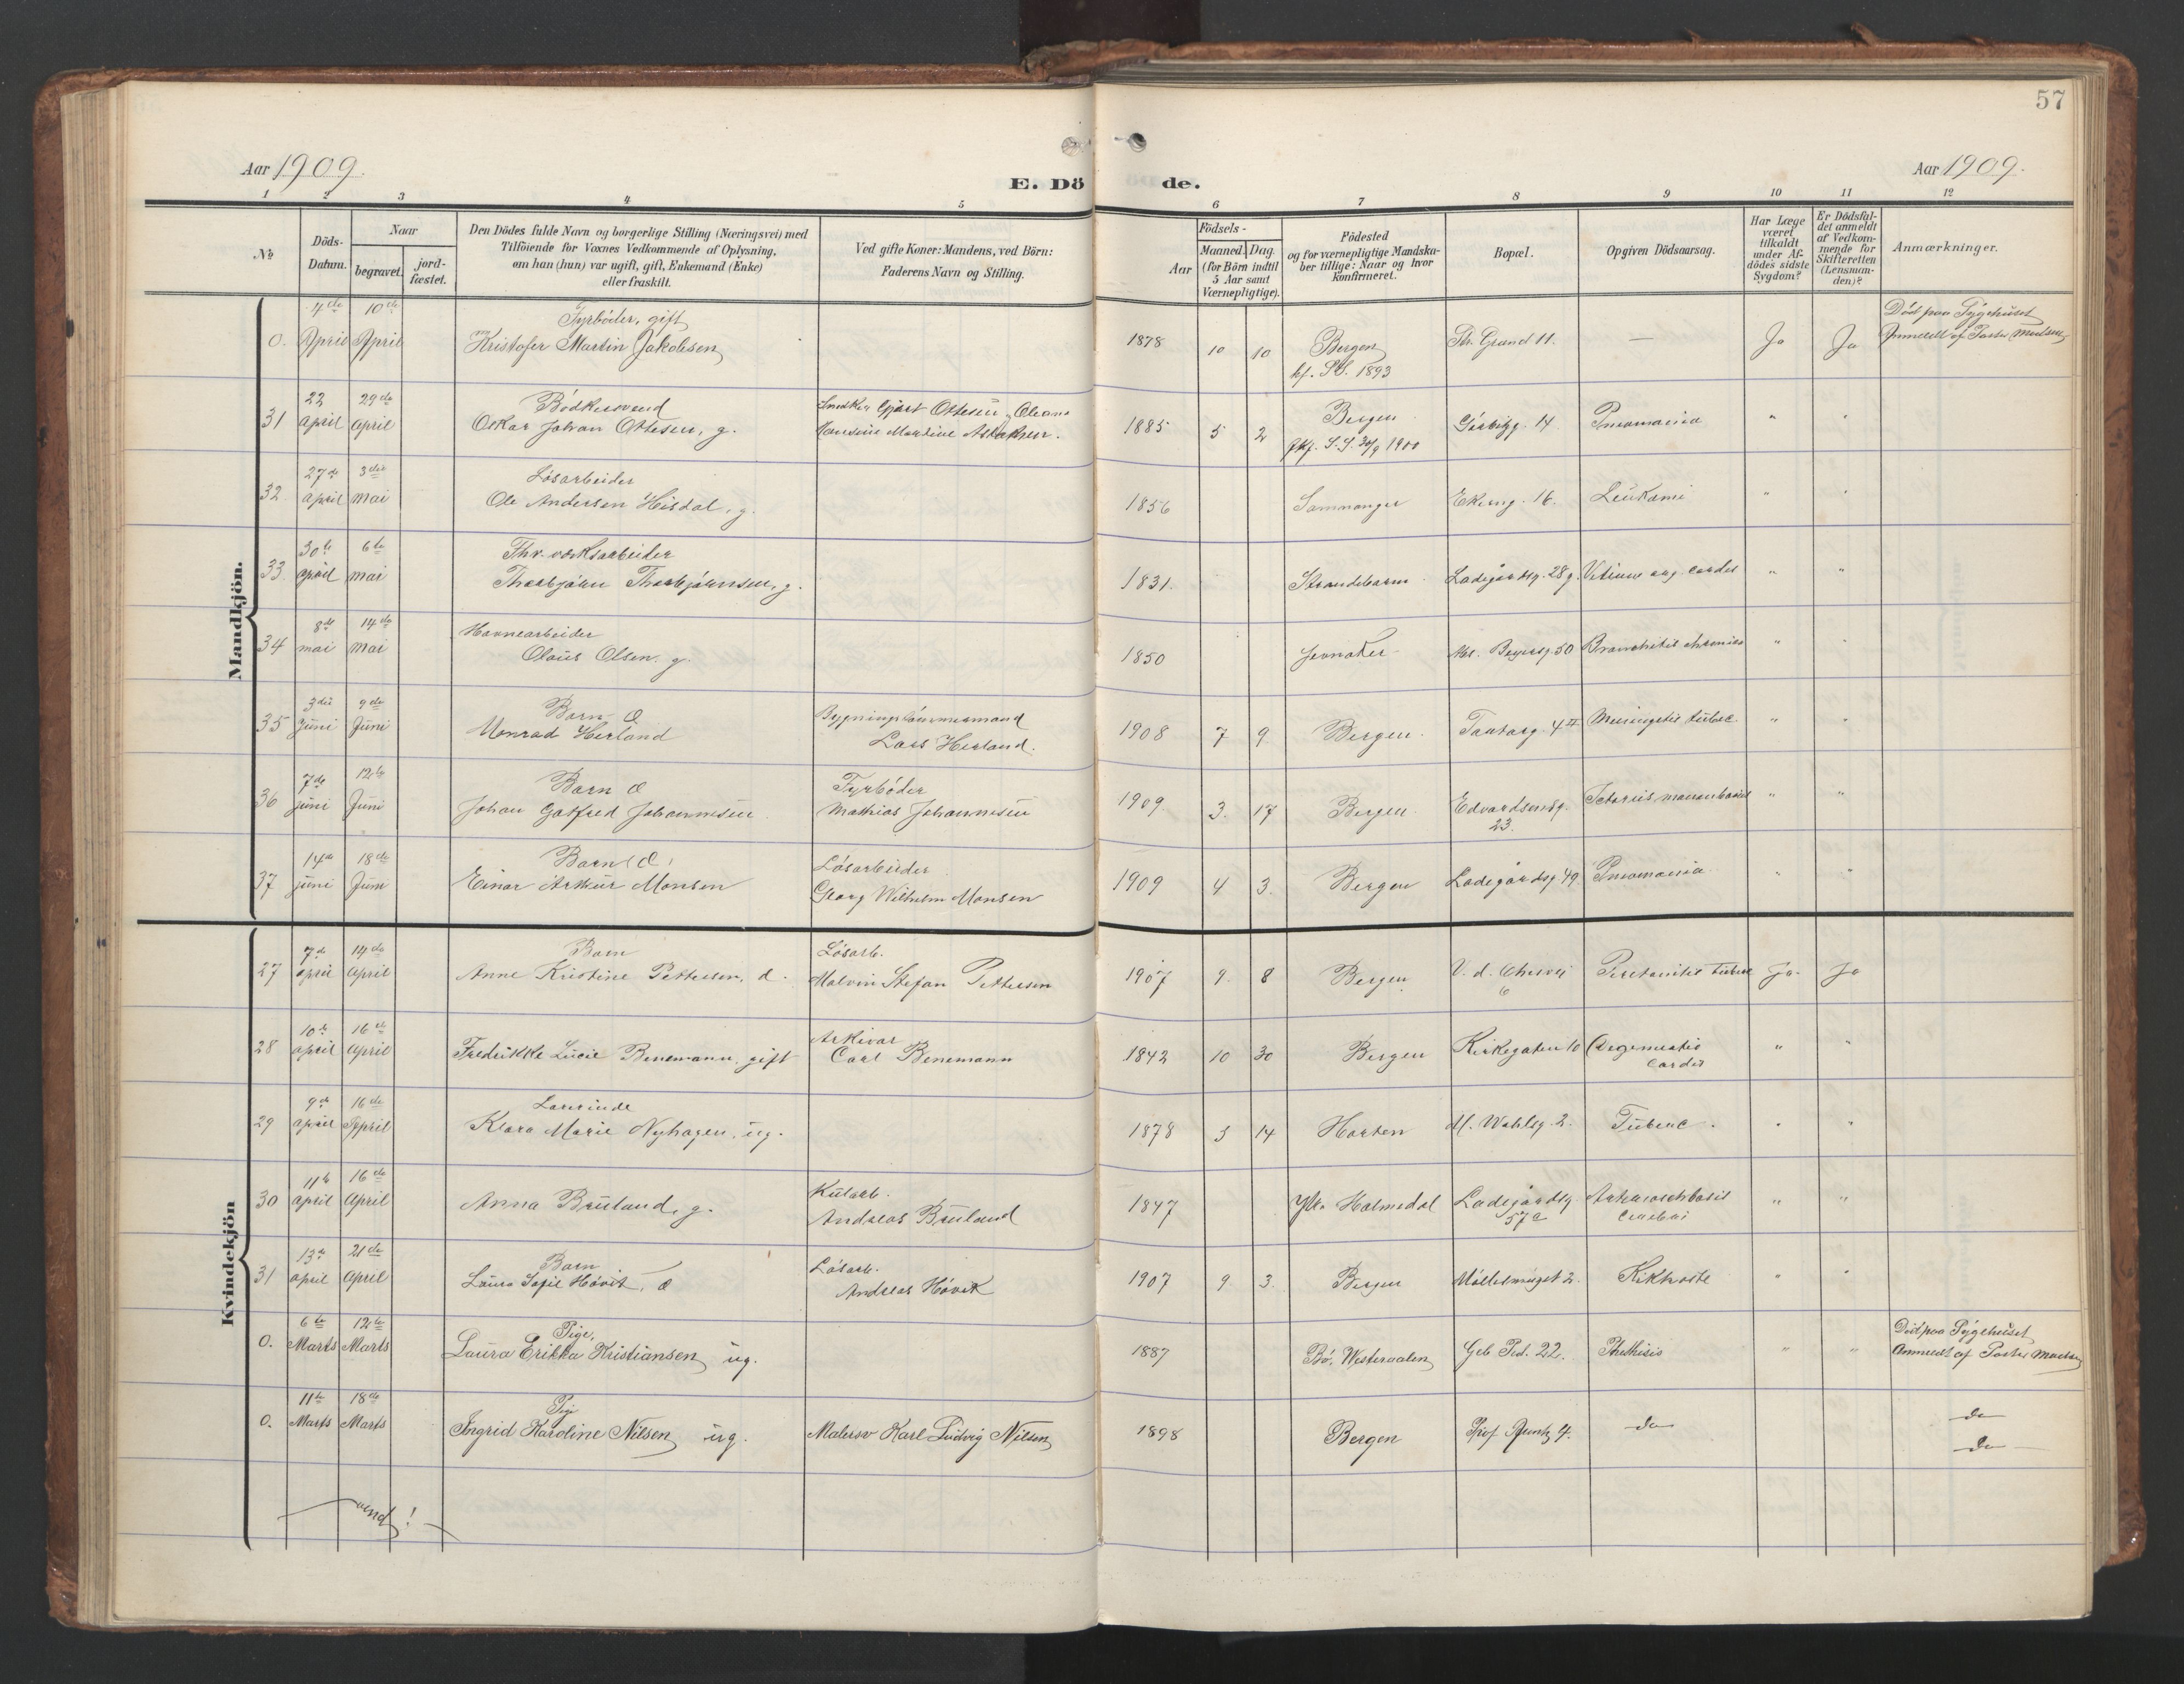 57
Aar 1909.
E. Dö de.
Aar 1909.
1 2 3 4 5 6 7 8 9 10 11 12
No
Döds-Datum.
Naar
begravet.
jordfæstet.
Den Dödes fulde Navn og borgerlige Stilling (Næringsvei) med
Tilföiende for Voxnes Vedkommende af Oplysning,
om han (hun) var ugift, gift, Enkemand (Enke)
eller fraskilt.
Ved gifte Koner: Mandens, ved Börn:
Faderens Navn og Stilling.
Födsels-
Aar
Maaned. Dag
(for Börn indtil
5 Aar samt
Værnepligtige).
Födested
og for værnepligtige Mandska-
ber tillige: Naar og hvor
konfirmeret.
Bopæl.
Opgiven Dödsaarsag.
Har Læge
været
tilkaldt
under Af-
dödes sidste
Sygdom?
Er Dödsfal-
det anmeldt
af Vedkom-
mende for
Skifteretten
(Lensman-
den)?
Anmærkninger.
Mandkjön.
0. 4de April 10de April Fyrböder, gift
Kristofer Martin Jakobsen 1878 10 10 Bergen
kf. 1893 Str. Grund 11. — Ja Ja Död paa Sygehuset
Anmeldt af Pastor Madsen
31 22 April 29de April Bödkersvend
Oskar Johan Ottesen, g. Ottesen 1885 5 2 Bergen
S.S. 30/9 1900 14. Pneumonia " "
32. 27de April 3die mai Lösarbeider
Ole Andersen Hisdal, g. 1856 Sammanger Ekreng. 16. Leukämi " "
33. 30te april 6te mai Thr. værksarbeider
Thorbjörn Thorbjörnsen, g. 1831. Strandebarm Ladegårdsg. 28 Vitium org. cordis " "
34 8de mai 14de mai Havnearbeider
Olaus Olsen. g. 1850 Jevnaker Abs. Beyersg. 50 Bronchitis chronica " "
35 3die Juni 9de Juni Barn
Monrad Herland Bygningstömmermand
Lars Herland. 1908 7 9 Bergen. 4 II Meningitis tuberc. " "
36 7de juni 12te Juni Barn
Johan Gotfred Johannesen Fyrböder
Mathias Johannesen 1909. 3. 17 Bergen. Edvardsensg.
23. " "
37 14de juni 18de Juni Barn
Einar Arthur Monsen Lösarbeider
Georg Wilhelm Monsen 1909 4 3. Bergen Ladegårdsg. 49 Pneumonia " "
Kvindekjön
27 7de april 14de April Barn
Anne Kristine Pettersen, d. Lösarb.
Malvin Stefan Pettersen 1907 9. 8 Bergen 6 Peritonitis tuberc Ja. Ja
28 10de april 16de April Fredrikke Lucie Benemann, gift Arkivar
Carl Benemann 1842 10 30 Bergen Kirkegaten 10 Degeneratio
cordis " "
29 9de april 16de April Lærerinde
Klara Marie Nyhagen, ug. 1878 3 14 Horten M. Wahlsg. 2. Tuberc. " "
30 11te april 16de April Anna Bruland, g. Kularb.
Andreas Bruland 1847 Ytr. Holmedal Ladegårdsg
57c " "
31 13de april 21de April Barn
Laura Sofie Hövik, Lösarb.
Andreas Hövik 1907 9. 3. Bergen Möllesmuget 2. Kikhoste " "
0. 6te Marts 12te Marts Pige,
Laura Erikka Kristiansen ug. 1887 Bö, Westeraalen Geb Ped. 22. Phthisis " " Död paa Sygehuset
Anmeldt af Pastor Madsen
0. 11te Marts 18de Marts Pige
Ingrid Karoline Nilsen ug. Malersv Karl Ludvig Nilsen 1898 Bergen 4. do do
do
vend!